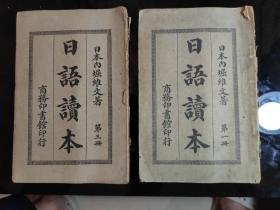 日本內堀維文著
日語讀本
第三冊
商務印書館印行
日本內堀維文著
日語讀本
第一冊
商務印書館印行